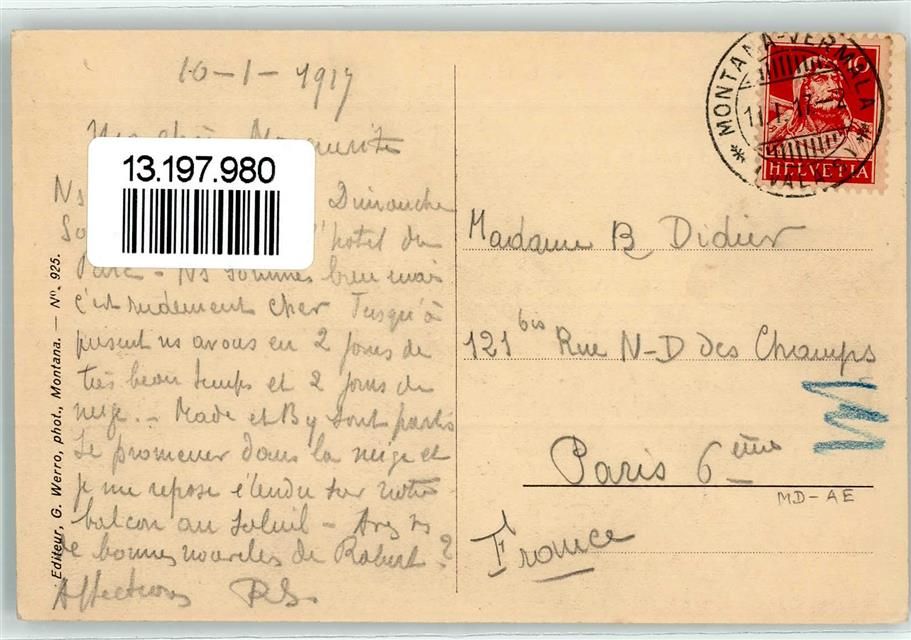 10-1-1917
Ma chère Marguerite
13.197.980
Ns Dimanche
So l'hotel du
Parc - Ns sommes bien mais
c'est rudement cher Jusqu'à
présent ns avons eu 2 jours de
très beau temps et 2 jours de
neige. - Made et By sont partis
se promener dans la neige et
je me repose étendu sur notre
balcon au soleil - Avez vs
de bonnes nouvelles de Robert ?
Affections
Editeur, G. Werro, phot., Montana. — No. 925.
MONTANA-VERMALA
(VALAIS)
11.I.17
10
HELVETIA
Madame B Didier
121 bis Rue N-D des Champs
Paris 6ème
MD-AE
France